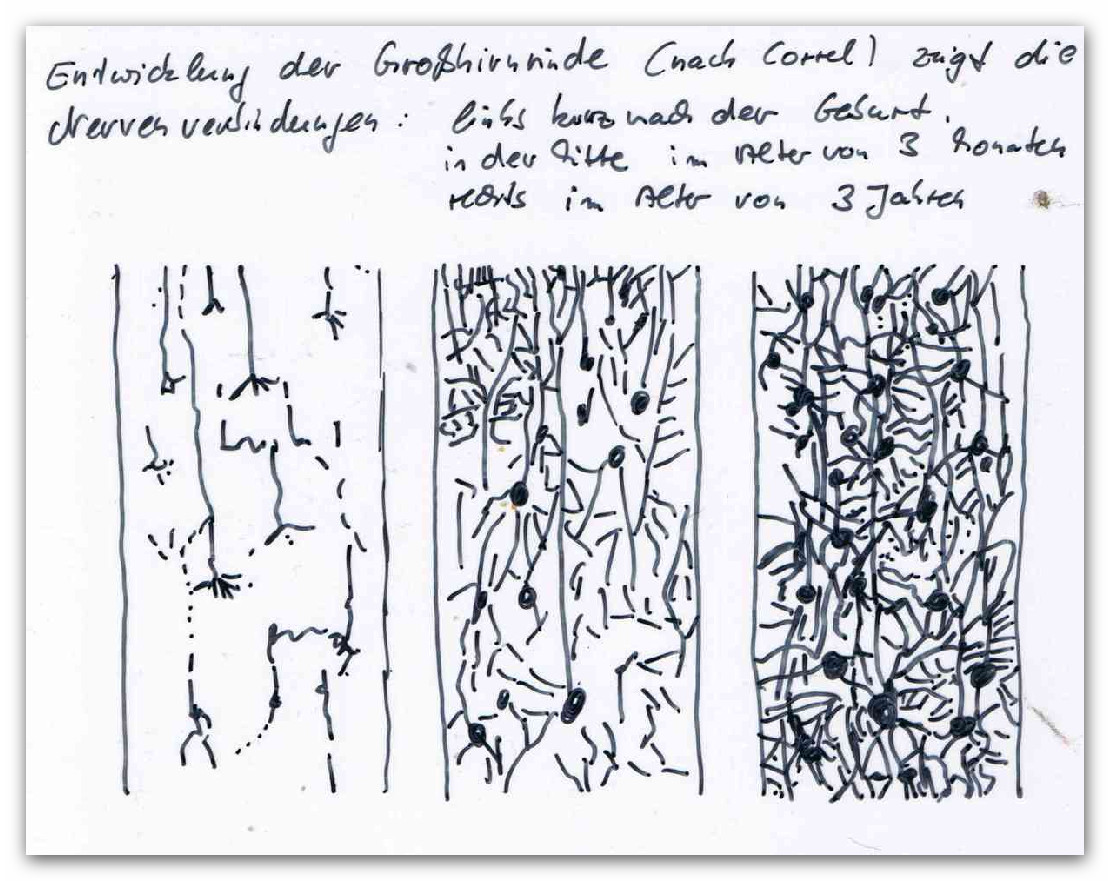 Entwicklung der Großhirnrinde (nach Correl) zeigt die
Nervenverbindungen: links kurz nach der Geburt,
in der Mitte im Alter von 3 Monaten
rechts im Alter von 3 Jahren